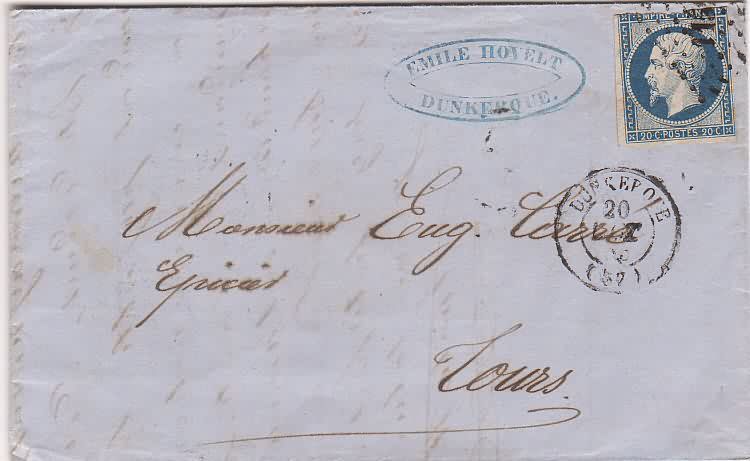 EMILE HOVELT
DUNKERQUE.
EMPIRE FRANC
20 C. POSTES 20 C
DUNKERQUE
20
(57)
Monsieur Eug.
Epicier
Tours.